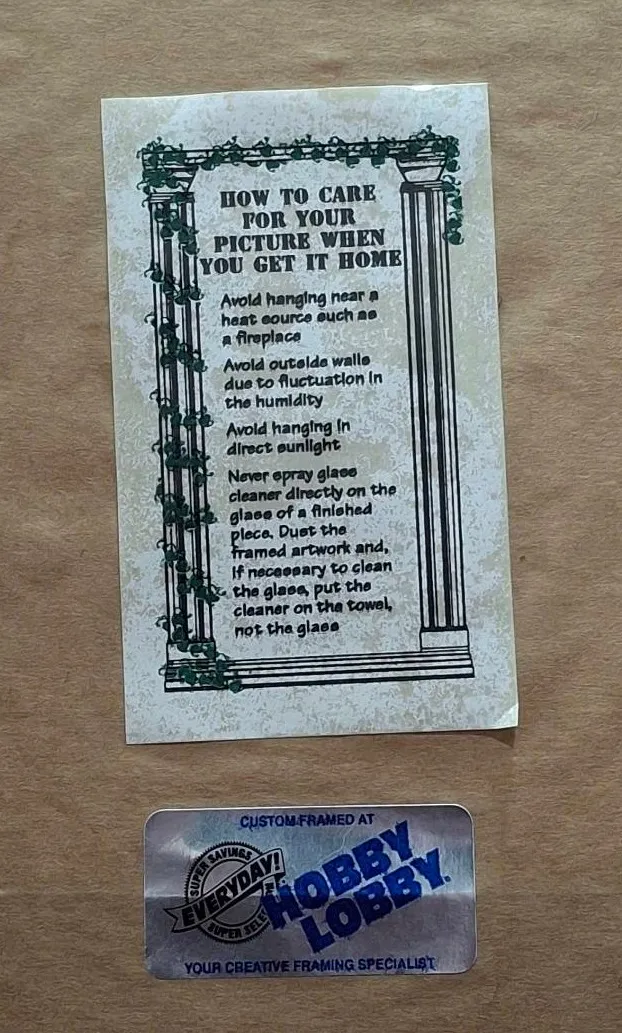 HOW TO CARE
FOR YOUR
PICTURE WHEN
YOU GET IT HOME
Avoid hanging near a
heat source such as
a fireplace
Avoid outside walls
due to fluctuation in
the humidity
Avoid hanging in
direct sunlight
Never spray glass
cleaner directly on the
glass of a finished
piece. Dust the
framed artwork and,
if necessary to clean
the glass, put the
cleaner on the towel,
not the glass
CUSTOM FRAMED AT
SUPER SAVINGS
EVERYDAY!
SUPER
HOBBY
LOBBY.
YOUR CREATIVE FRAMING SPECIALIST